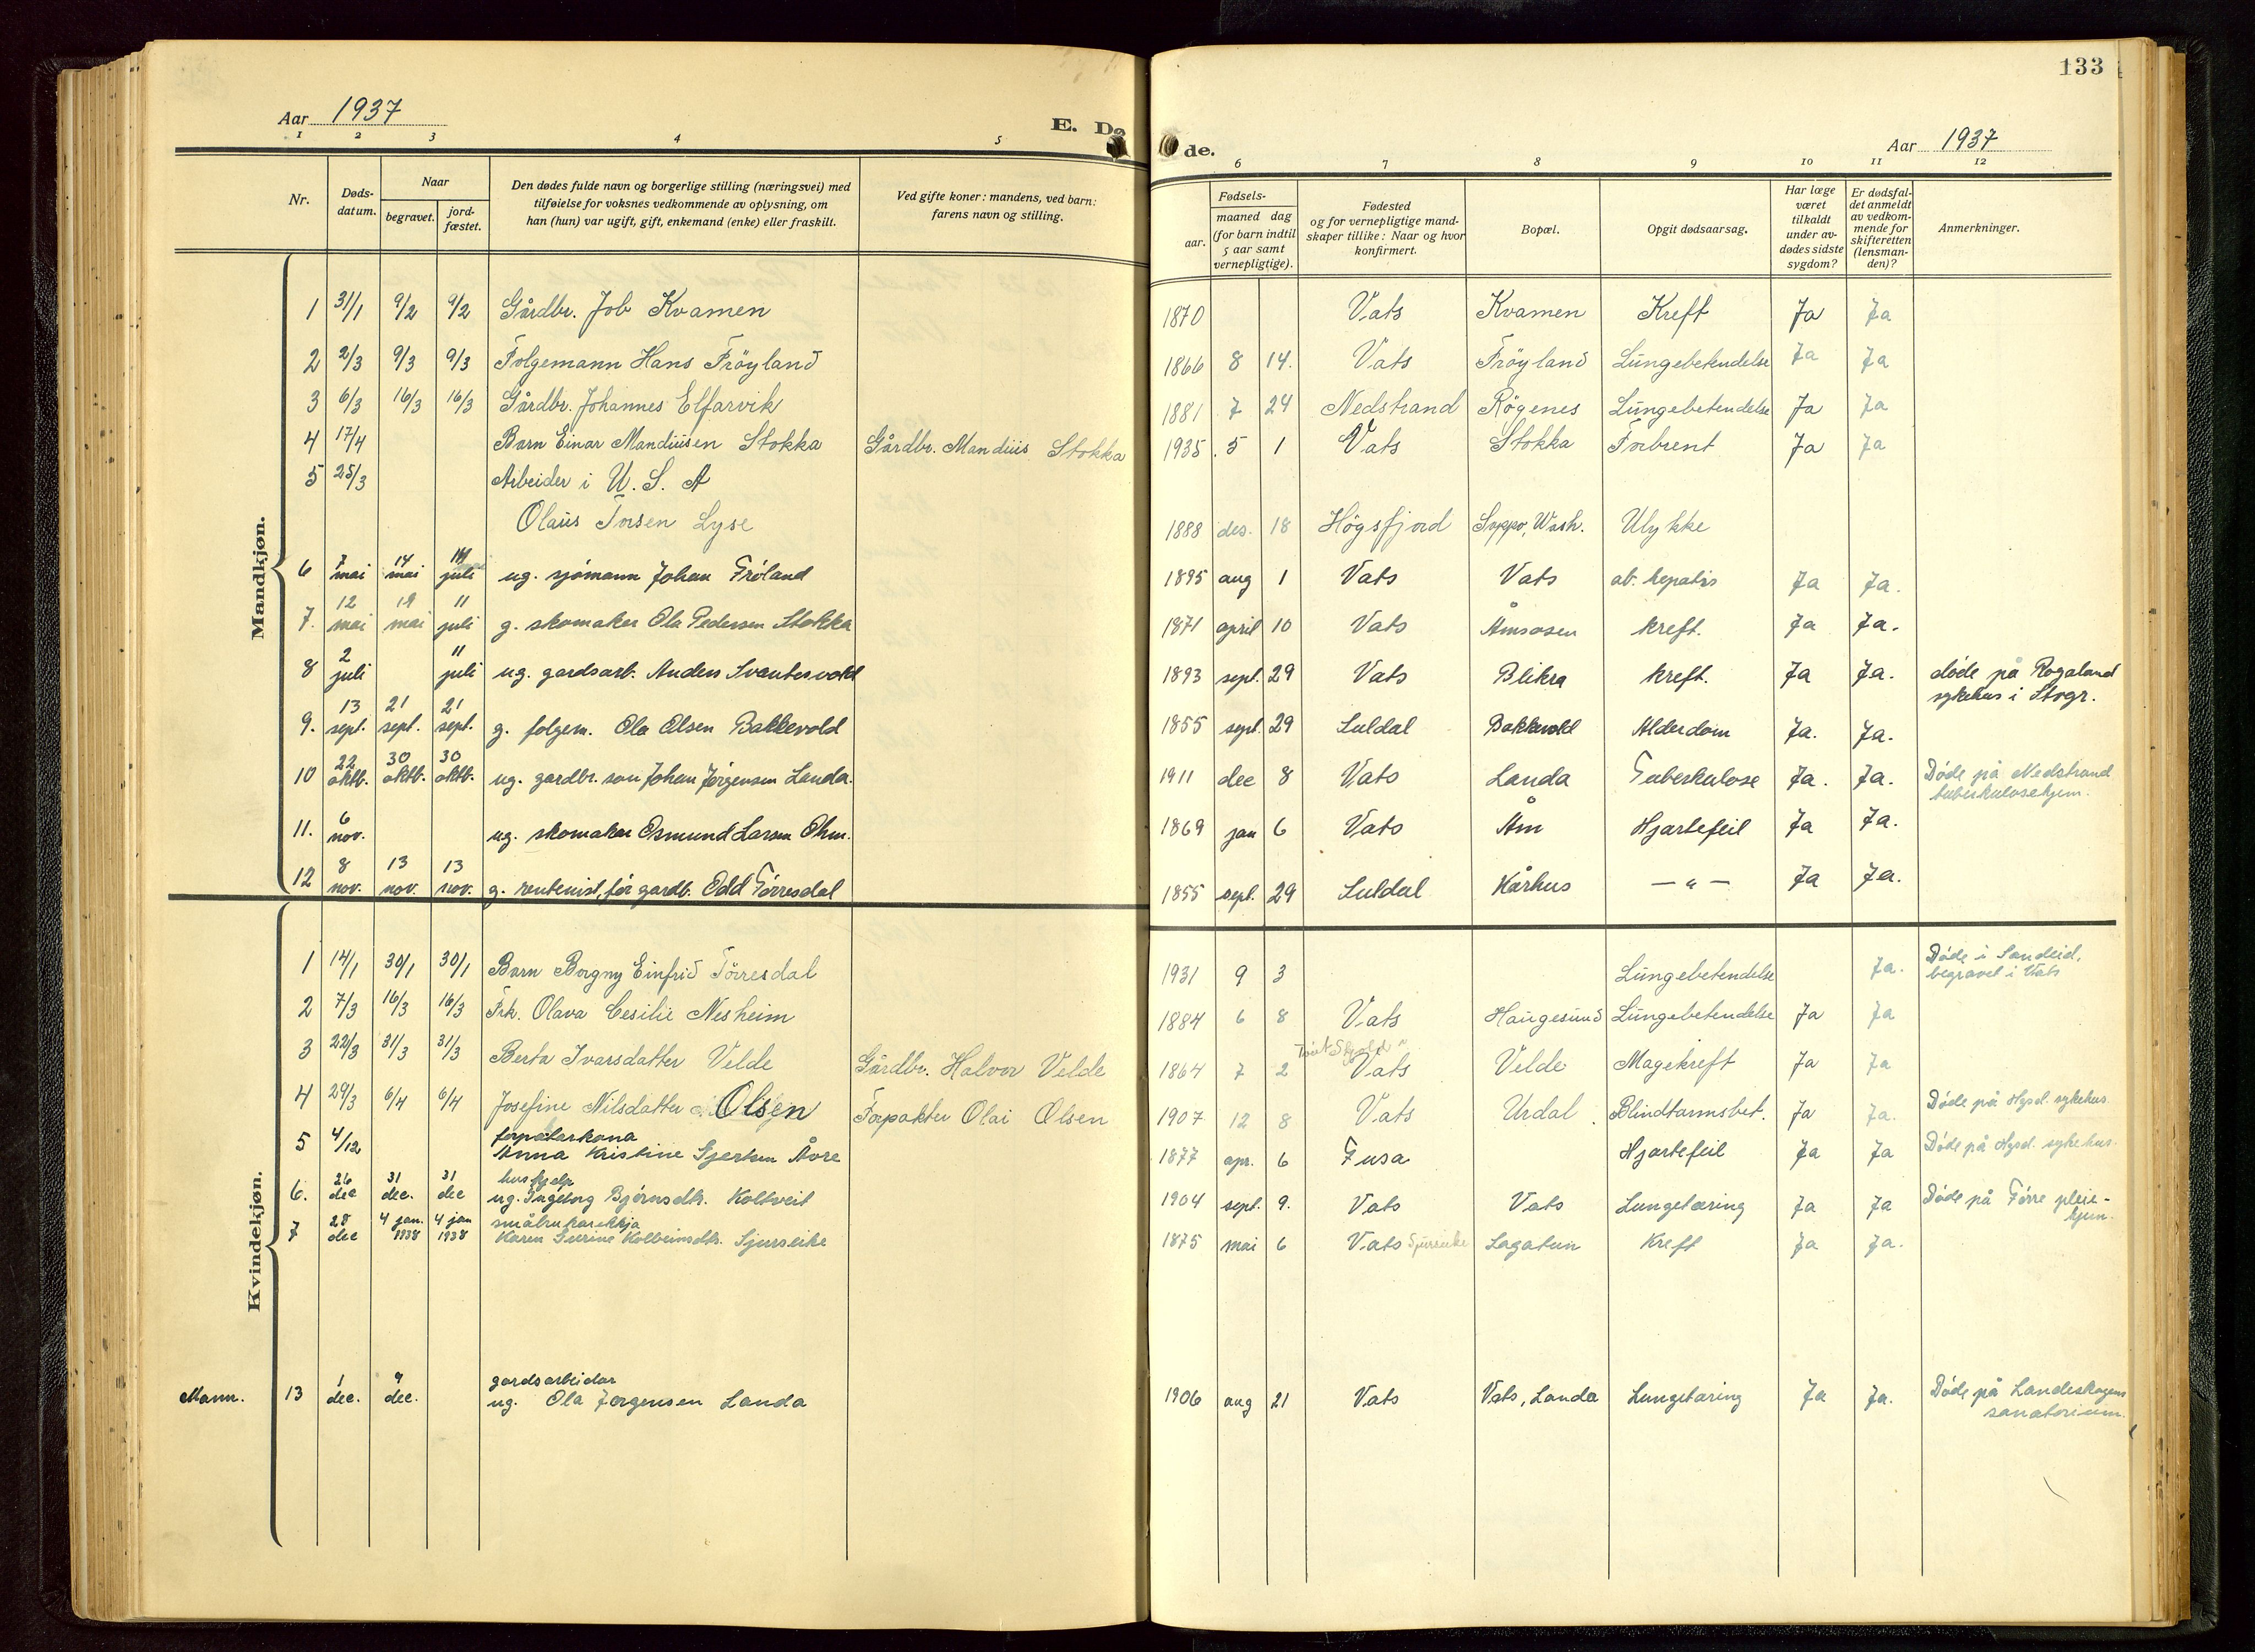 133
Aar 1937
E. Dø
de.
Aar 1937
1 2 3 4 5 6 7 8 9 10 11 12
Nr.
Døds-datum.
Naar
begravet.
jord-fæstet.
Den dødes fulde navn og borgerlige stilling (næringsvei) med
tilføielse for voksnes vedkommende av oplysning, om
han (hun) var ugift, gift, enkemand (enke) eller fraskilt.
Ved gifte koner: mandens, ved barn:
farens navn og stilling.
aar.
Fødsels-
maaned dag
(for barn indtil
5 aar samt
vernepligtige).
Fødested
og for vernepligtige mand-
skaper tillike: Naar og hvor
konfirmert.
Bopæl.
Opgit dødsaarsag.
Har læge
været
tilkaldt
under av-
dødes sidste
sygdom?
Er dødsfal-
det anmeldt
av vedkom-
mende for
skifteretten
(lensman-
den)?
Anmerkninger.
Mandkjøn.
1 31/1 9/2 9/2 Gårdbr. Job Kvamen 1870 Vats Kvamen Kreft Ja Ja
2 2/3 9/3 9/3 Folgemann Hans Fröyland 1866 8 14. Vats Fröyland Lungebetendelse Ja Ja
3 6/3 16/3 16/3 Gårdbr. Johannes Elfarvik 1881 7 24 Nedstrand Rögenes Lungebetendelse Ja Ja
4 17/4 Barn Einar Mandiusen Stokka Gårdbr. Mandius Stokka 1935 5 1 Vats Stokka Forbrent Ja Ja
5 25/3 Arbeider i U. S. A
Olaus Torsen Lyse 1888 des. 18 Högsfjord Wash. Ulykke
6 7 mai 14 mai 11 juli ug. sjómann Johan Fróland 1895 aug 1 Vats Vats ab. hepatis Ja Ja.
7. 12 mai 19 mai 11 juli g. skomaker Ola Pedersen Stokka 1871 april 10 Vats Åmsosen kreft. Ja Ja.
8 2 juli 11 juli ug. gardsarb. Anders Svantesvold 1893 sept. 29 Vats Blikra kreft. Ja Ja. døde på Rogaland
sykehus i Stvgr.
9. 13 sept. 21 sept. 21 sept. g. folgem. Ola Olsen Bakkevold 1855 sept. 29 Suldal Bakkevold Alderdom Ja. Ja.
10 22 oktb. 30 oktb. 30 oktb. ug. gardbr. son Johan Jørgensen Landa. 1911 dec 8 Vats Landa Tuberkulose Ja. Ja. Døde på Nedstrand
tuberkulosehjem.
11. 6 nov. ug. skomaker Osmund Larsen Ohm. 1869 jan 6 Vats Åm Hjartefeil Ja Ja.
12 8 nov. 13 nov. 13 nov. g. rentenist, før gardb. Odd Tørresdal 1855 sept. 29 Suldal Kårhus — " — Ja Ja.
Kvindekjøn.
1 14/1 30/1 30/1 Barn Borgny Einfrid Törresdal 1931 9 3 Lungebetendelse Ja. Døde i Sandeid,
begravet i Vats
2 7/3 16/3 16/3 Frk. Olava Cesilie Nesheim 1884 6 8 Vats Haugesund Lungebetendelse Ja Ja
3 22/3 31/3 31/3 Berta Ivarsdatter Velde Gårdbr. Halvor Velde 1864 7 2 Vats Velde Magekreft Ja Ja
4 29/3 6/4 6/4 Josefine Nilsdatter Olsen Forpakter Olai Olsen 1907 12 8 Vats Urdal Blindtarmsbet. Ja Ja. Døde på Hgsd. sykehus
5 4/12 forpaktarkona
Anna Kristine Gjertsen Åvre 1877 apr. 6 Fusa Hjartefeil Ja Ja Døde på Hgsd. sykehus.
6. 26 dec 31 dec. 31 dec hushjelp
ug. Ingeborg Bjørnsdtr. Kolltveit 1904 sept. 9. Vats Vats Lungetæring Ja Ja Døde på Tørre pleie-
hjem.
7 28 dec 4 jan. 1938 4 jan 1938 småbrukarekkja
Karen Gurine Kolbeinsdtr. Sjurseike 1875 mai 6 Vats Sjurseike Lagatun Kreft Ja Ja.
Mann. 13 1 dec. 9 dec. gardsarbeidar
ug. Ola Jørgensen Landa 1906 aug 21 Vats Vats, Landa Lungetæring Ja Ja. Døde på Landeskogen
sanatorium.